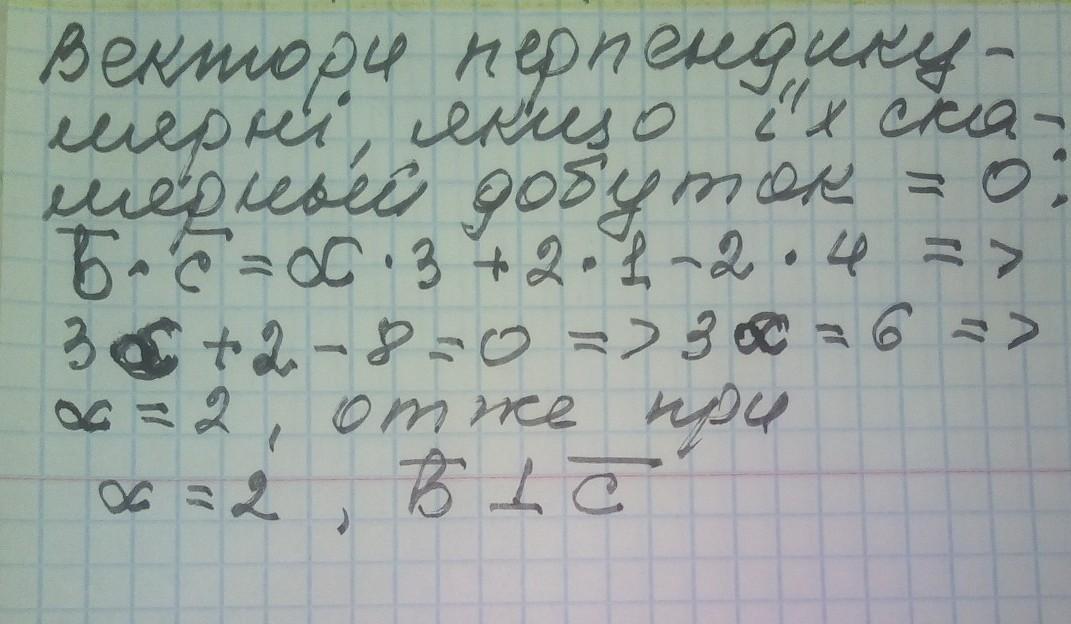 Вектори перпендику-
лярні, якщо їх ска-
лярный добуток = 0:
b̅ · c̅ = α · 3 + 2 · 1 - 2 · 4 =>
3α + 2 - 8 = 0 => 3α = 6 =>
α = 2, отже при
α = 2, b̅ ⊥ c̅